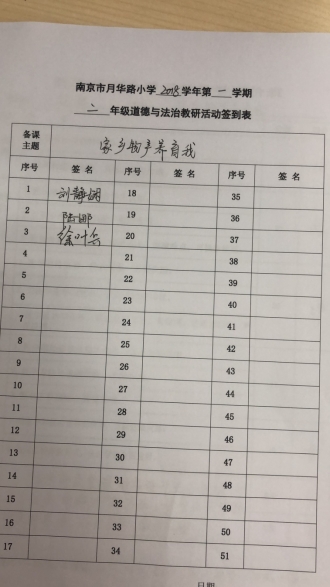 南京市月华路小学 2018 学年第 一 学期
二 年级道德与法治教研活动签到表
备课主题 家乡物产养育我
序号 签名 序号 签名 序号 签名
1 刘静娴 18 35
2 陆娜 19 36
3 徐叶兵 20 37
4 21 38
5 22 39
6 23 40
7 24 41
8 25 42
9 26 43
10 27 44
11 28 45
12 29 46
13 30 47
14 31 48
15 32 49
16 33 50
17 34 51
日期